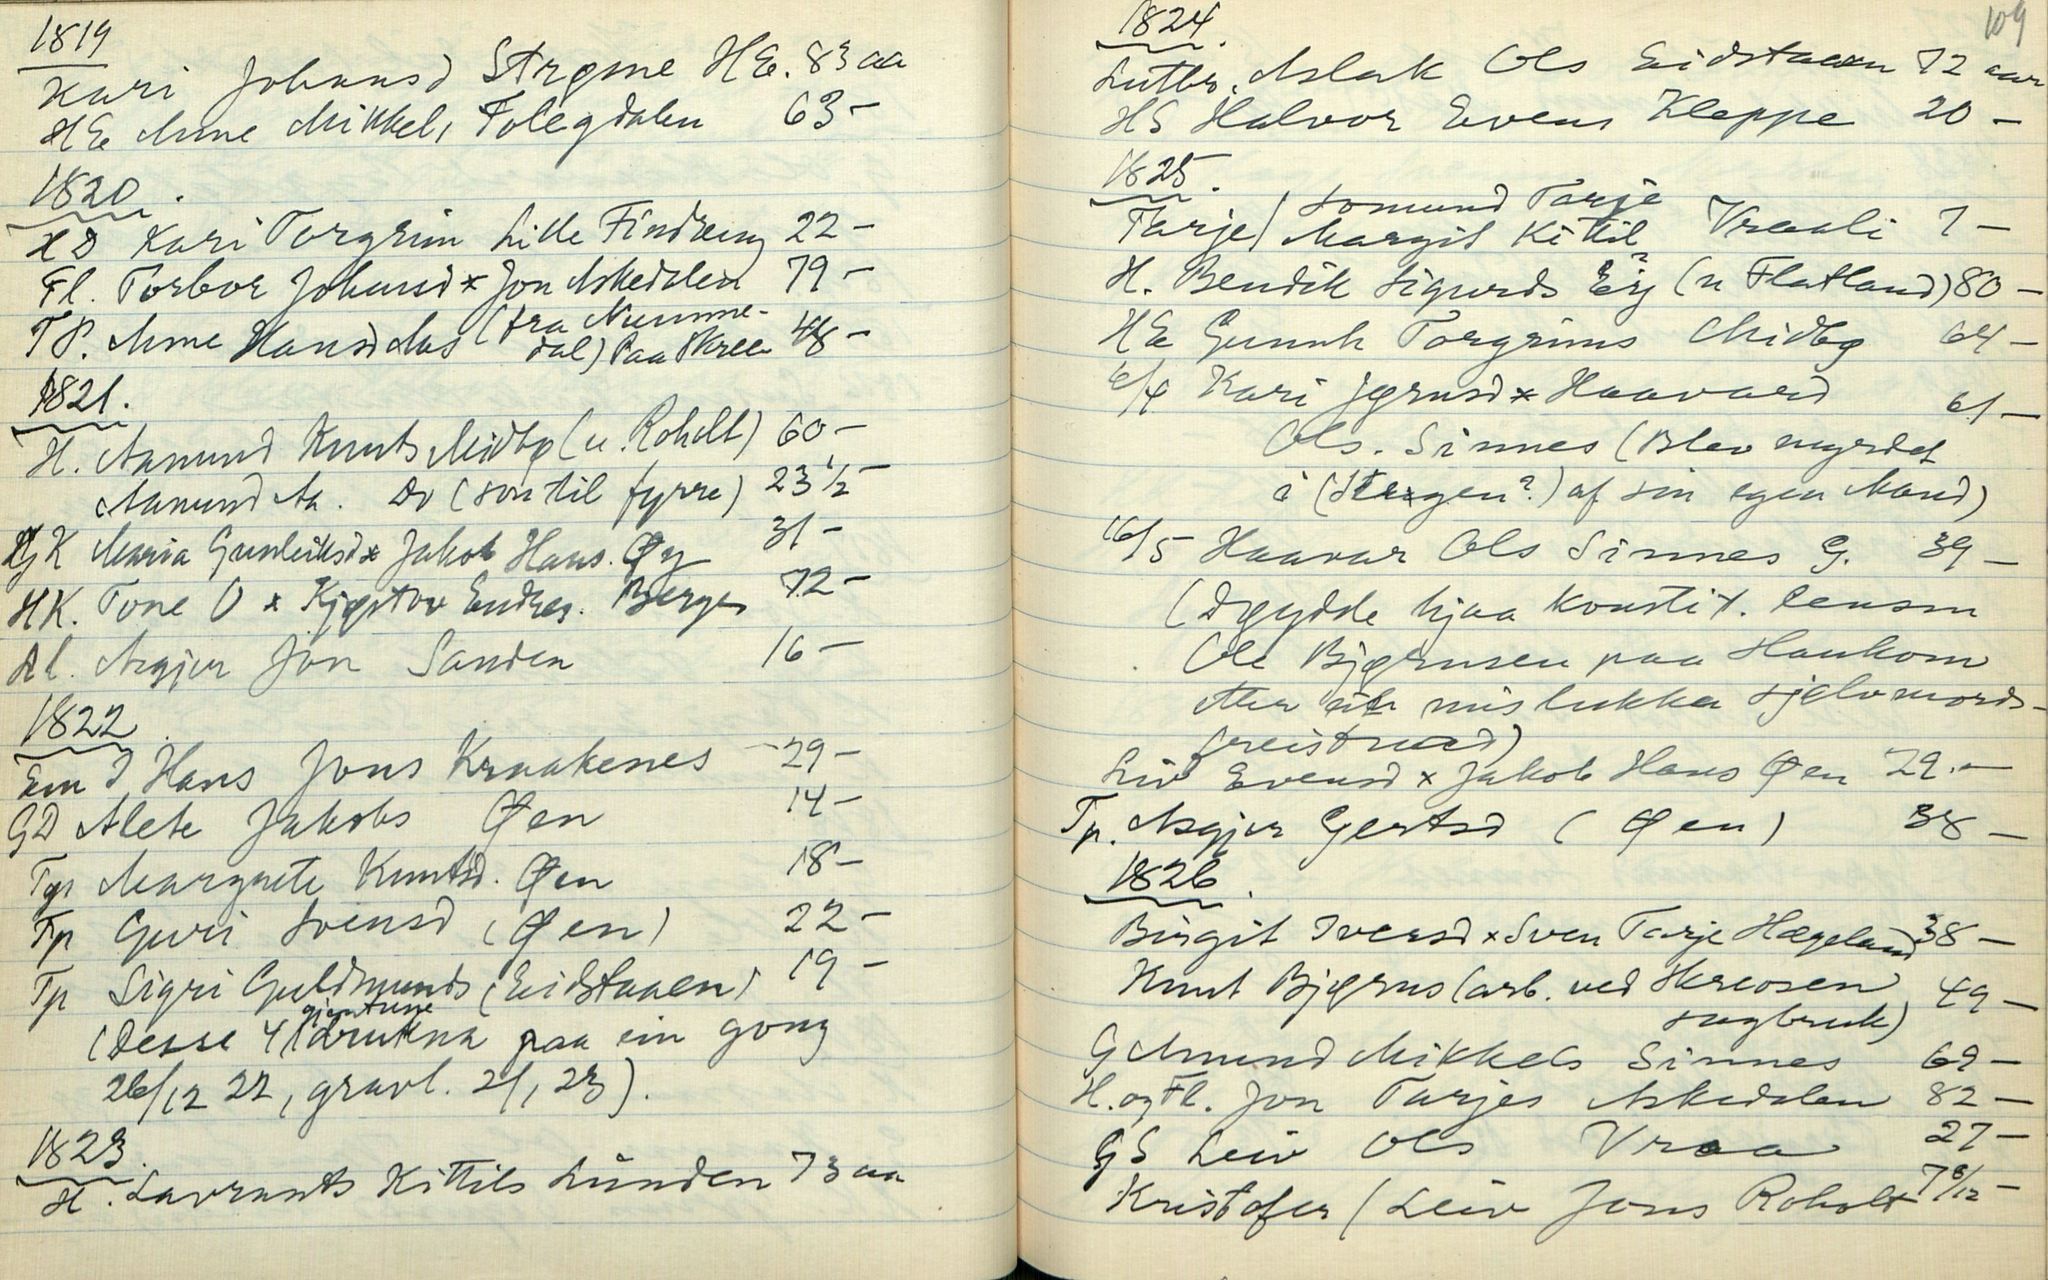 1819
Kari Johansd Strøme HE. 83 aa
HE Anne Mikkels Folegdalen 63 –
1820.
Kari Torgrim Lille Findreng 22 –
Fl. Torbor Johansd x Jon Askedalen 79 –
TP. Anne Hansd Aas (fra Numme-
dal) Paa Skree 48 –
1821.
H. Aamund Knuts Midbø (u. Roholt) 60 –
Aamund Aa. Do (son til fyrre) 23 1/2 –
GK Maria Gunleiksd x Jakob Hans. Øy 31 –
HK. Tone O x Kjøstov Endres. Berge 72 –
Al. Asgjer Jon Sanden 16 –
1822.
Em d Hans Jons Kraakenes 29 –
GD Alete Jakobs Øen 14 –
Tp Margrete Knutsd. Øen 18 –
Tp Guri Svensd (Øen) 22 –
Tp Sigri Guldmunds (Eidstaaen) 19 –
gjentune
(Desse 4 drukna paa ein gong
26/12 22, gravl. 2/1 23).
1823.
H. Lavrants Kittils Lunden 73 aa
109
1824.
Luthr. Aslak Ols Eidstaaen 72 aar
HS Halvor Evens Kleppe 20 –
1825.
Tarje / Aomund Tarje
Margit Kittil Vraali 7 –
H. Bendik Sigurds Eij (u Flatland) 80 –
HE Gunnh Torgrims Midbø 64 –
6/4 Kari Jørnsd x Haavard 61 –
Ols. Sinnes (Blev myrdet
i (Skogen?) af sin egen Mand)
16/5 Haavar Ols Sinnes G. 39 –
(Døydde hjaa konstit. lensm
Ole Bjørnsen paa Haukom
etter eit mislukka sjølvmords-
freistnad)
Liv Evensd x Jakob Hans Øen 29. –
Tp. Asgjer Gertsd (Øen) 38 –
1826.
Birgit Iversd x Sven Tarje Hægeland 38 –
Knut Bjørns (arb. ved Skreosen 49 –
sagbruk)
G Amund Mikkels Sinnes 69 –
H. og Fl. Jon Tarjes Askedalen 82 –
GS Leiv Ols Vraa 27 –
Kristofer (Leiv Jons Roholt 7 8/12 –